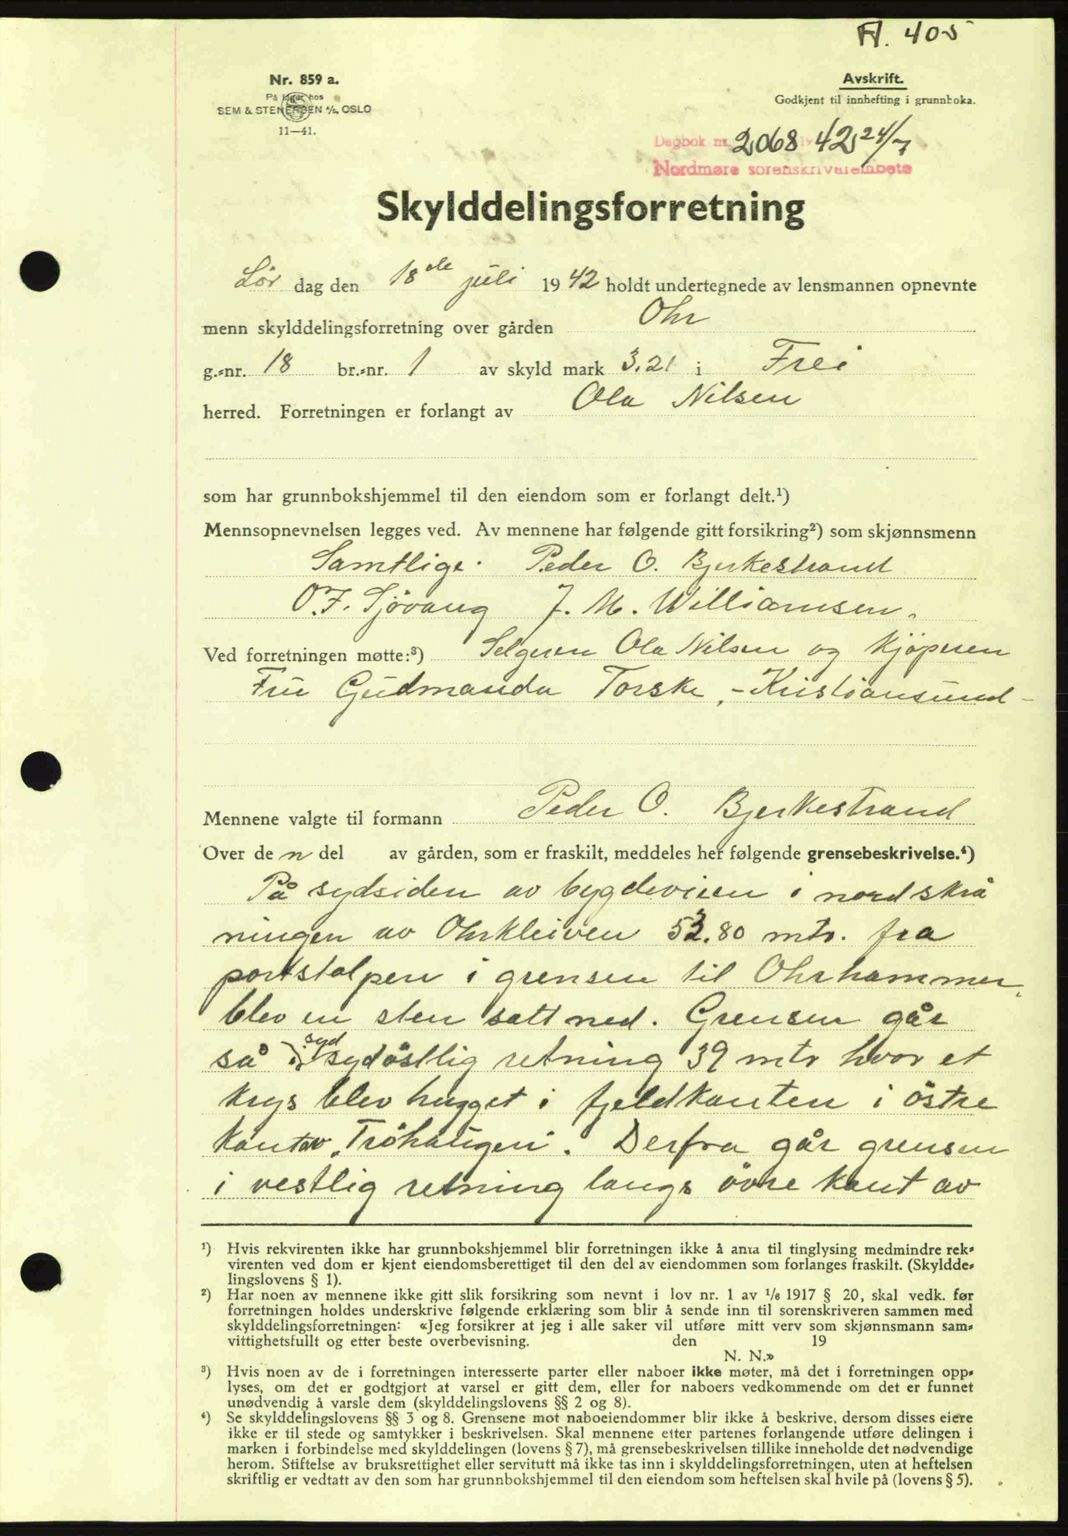 A. 405
Nr. 859 a.
På lager hos
SEM & STENERSEN A/S, OSLO
11—41.
Avskrift.
Godkjent til innhefting i grunnboka.
Dagbok nr. 2068 1942 24/7
Nordmøre sorenskriverembete
Skylddelingsforretning
Lör dag den 18de juli 1942 holdt undertegnede av lensmannen opnevnte
menn skylddelingsforretning over gården Ohr
g.-nr. 18 br.-nr. 1 av skyld mark 3.21 i Frei
herred. Forretningen er forlangt av Ola Nilsen
som har grunnbokshjemmel til den eiendom som er forlangt delt.¹)
Mennsopnevnelsen legges ved. Av mennene har følgende gitt forsikring²) som skjønnsmenn
Samtlige. Peder O. Bjerkestrand
O. F. Sjövang J. M. Williamsen.
Ved forretningen møtte:³) Selgeren Ola Nilsen og kjöperen
Fru Gudmanda Torske, - Kristiansund -
Mennene valgte til formann Peder O. Bjerkestrand
Over den del av gården, som er fraskilt, meddeles her følgende grensebeskrivelse.⁴)
På sydsiden av bygdeveien i nordskrå
ningen av Ohrkleiven 53.80 mtr. fra
portstolpen i grensen til Ohrhammer,
blev en sten satt ned. Grensen går
så i syd sydöstlig retning 39 mtr hvor et
krys blev hugget i fjeldkanten i östre
kant av "Tröhaugen". Derfra går grensen
i vestlig retning langs övre kant av
¹) Hvis rekvirenten ikke har grunnbokshjemmel blir forretningen ikke å anta til tinglysing medmindre rek-
virenten ved dom er kjent eiendomsberettiget til den del av eiendommen som forlanges fraskilt. (Skyldde-
lingslovens § 1).
²) Har noen av mennene ikke gitt slik forsikring som nevnt i lov nr. 1 av 1/6 1917 § 20, skal vedk. før
forretningen holdes underskrive følgende erklæring som blir å sende inn til sorenskriveren sammen med
skylddelingsforretningen: «Jeg forsikrer at jeg i alle saker vil utføre mitt verv som skjønnsmann sam-
vittighetsfullt og etter beste overbevisning. den 19
N. N.»
³) Hvis noen av de i forretningen interesserte parter eller naboer ikke møter, må det i forretningen opp-
lyses, om det er godtgjort at varsel er gitt dem, eller for naboers vedkommende om det er funnet
unødvendig å varsle dem (skylddelingslovens §§ 2 og 8).
⁴) Se skylddelingslovens §§ 3 og 8. Grensene mot naboeiendommer blir ikke å beskrive, dersom disses eiere
ikke er til stede og samtykker i beskrivelsen. Skal mennene etter partenes forlangende utføre delingen i
marken i forbindelse med skylddelingen (lovens § 7), må grensebeskrivelsen tillike inneholde det nødvendige
herom. Stiftelse av bruksrettighet eller servitutt må ikke tas inn i skylddelingsforretningen, uten at heftelsen
skriftlig er vedtatt av den som har grunnbokshjemmel til den eiendom som heftelsen skal hvile på (lovens § 5).